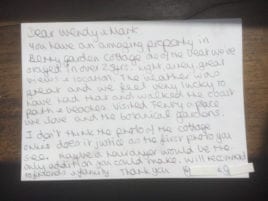 Dear Wendy & Mark
You have an amazing property in
Berry garden cottage one of the best we've
stayed in over 25yrs. Light, airey, great
views & location. The weather was
great and we feel very lucky to
have had that and walked the coast
path & beaches. Visited Tenby a place
we love and the botanical gardens.
I don't think the photo of the cottage
online does it justice as the first photo you
see. maybe a would be the
only addition you could make. Will recommend
to friends & family. Thank you